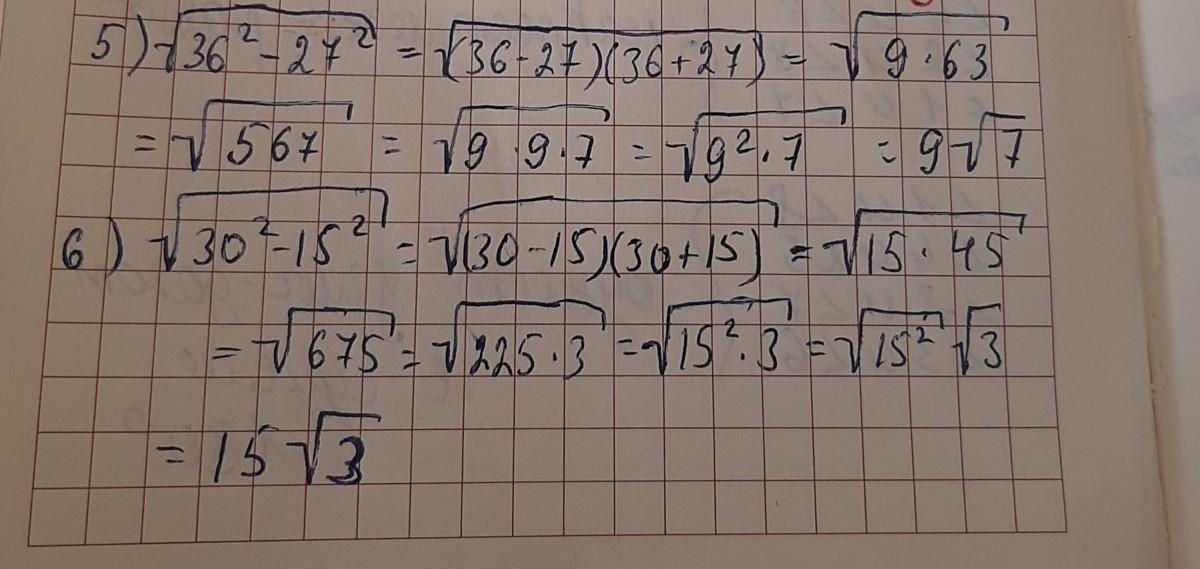 5) √(36² - 27²) = √((36-27)(36+27)) = √(9·63)
= √567 = √(9 9·7) = √(9²·7) = 9√7
6) √(30² - 15²) = √((30-15)(30+15)) = √(15·45)
= √675 = √(225·3) = √(15²·3) = √15² √3
= 15√3